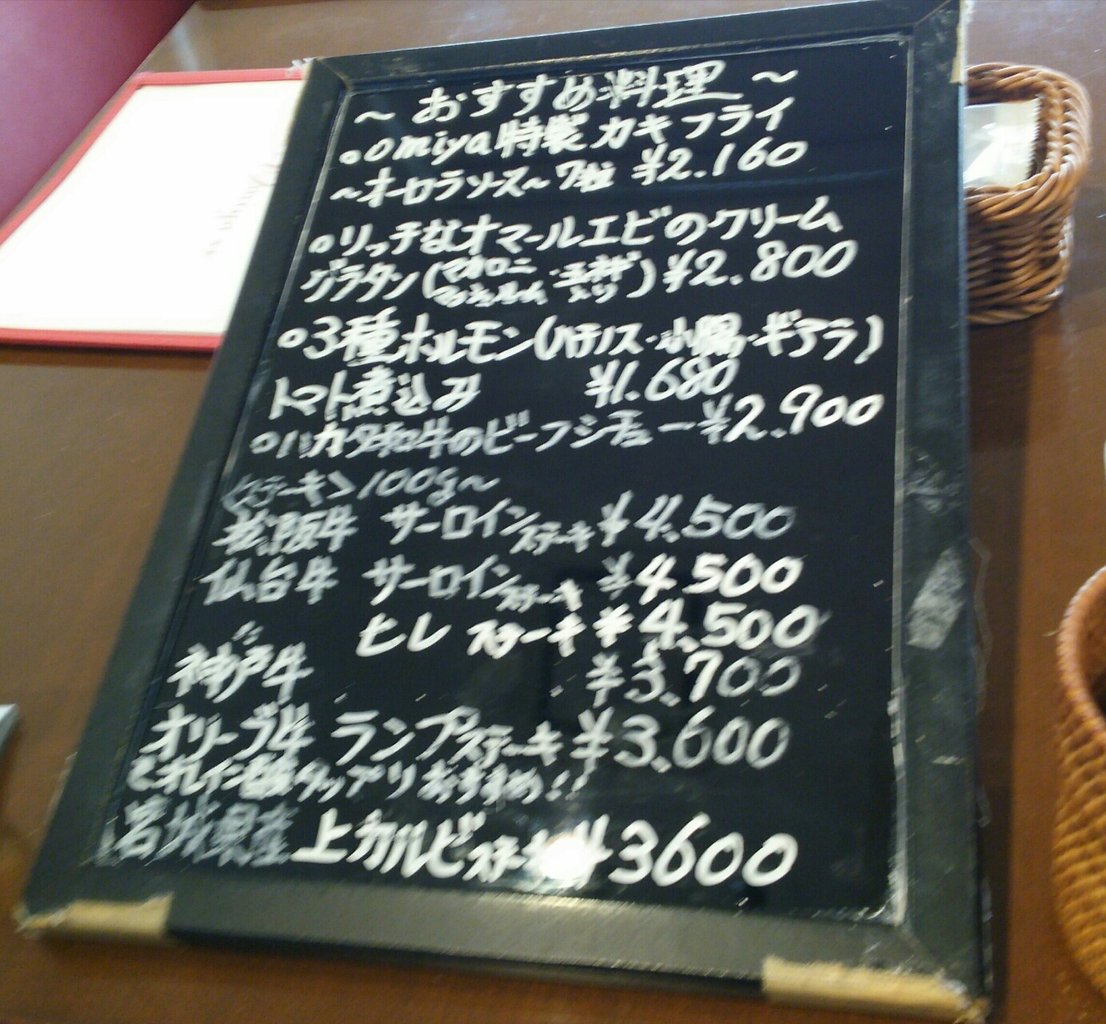 ～おすすめ料理～
。Omiya特製カキフライ
～オーロラソース～7粒 ¥2.160
○リッチなオマールエビのクリーム
グラタン(マカロニ・玉ネギ マッシュルーム入り)¥2.800
○3種ホルモン(ハチノス・小腸・ギアラ)
トマト煮込み ¥1.680
○ハカタ和牛のビーフシチュー ¥2.900
<ステーキ>100g～
松阪牛 サーロインステーキ ¥4.500
仙台牛 サーロインステーキ ¥4.500
〃 ヒレステーキ ¥4.500
神戸牛 ¥3.700
オリーブ牛 ランプステーキ ¥3.600
(オレイン酸タップリおすすめ!!
上カルビステーキ ¥3600